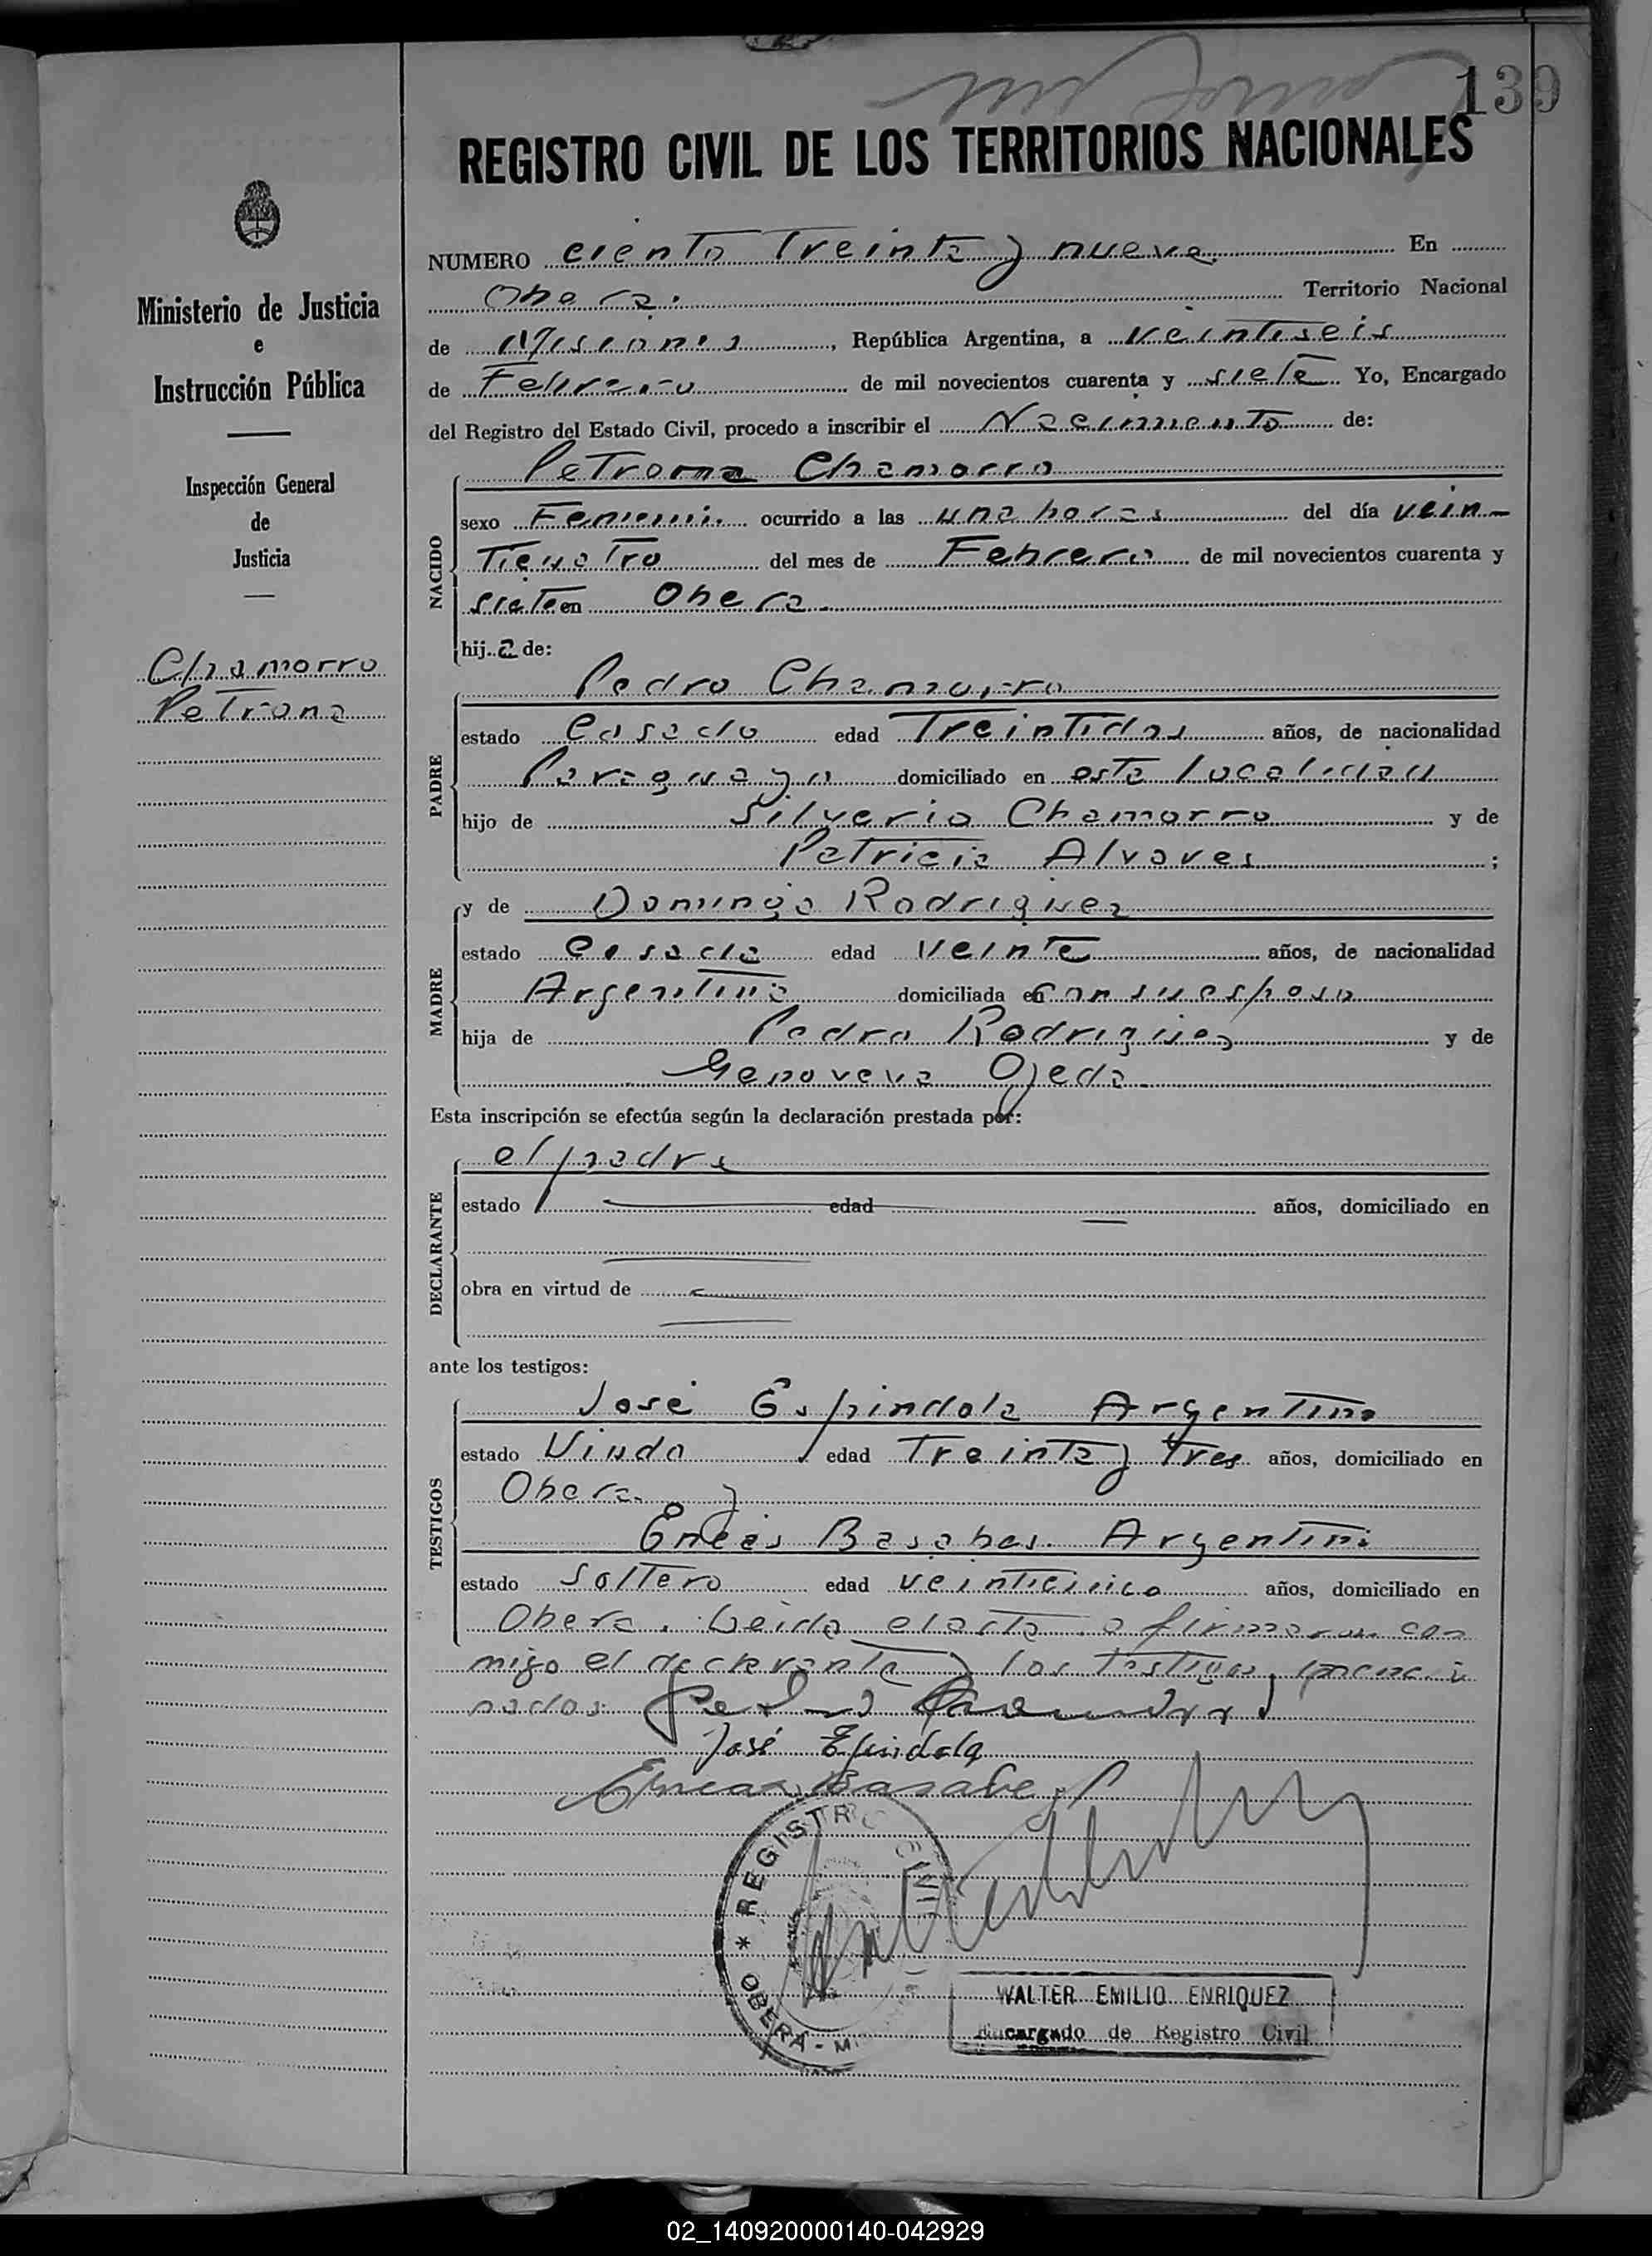 139
REGISTRO CIVIL DE LOS TERRITORIOS NACIONALES
Ministerio de Justicia
e
Instrucción Pública
Inspección General
de
Justicia
Chamorro
Petrona
NUMERO ciento Treinta y nueve. En
Obera. Territorio Nacional
de Misiones, República Argentina, a veintiseis
de Febrero de mil novecientos cuarenta y siete Yo, Encargado
del Registro del Estado Civil, procedo a inscribir el Nacimiento de:
Petrona Chamorro
NACIDO
sexo Femenin. ocurrido a las una horas del día vein-
Ticuatro del mes de Febrero de mil novecientos cuarenta y
siete en Obera.
hij a de:
Pedro Chamorro
PADRE
estado Casado edad Treintidos años, de nacionalidad
Paraguayo domiciliado en esta localidad
hijo de Silverio Chamorro y de
Patricia Alvares ;
MADRE
y de Dominga Rodriguez
estado casada edad veinte años, de nacionalidad
Argentina domiciliada en con su esposo
hija de Pedro Rodriguez y de
Genoveva Ojeda.
Esta inscripción se efectúa según la declaración prestada por:
el padre
DECLARANTE
estado edad años, domiciliado en
obra en virtud de
ante los testigos:
TESTIGOS
José Espindola Argentino
estado Viudo edad Treinta y Tres años, domiciliado en
Obera. y
Eneas Basabes. Argentino
estado Soltero edad veinticinco años, domiciliado en
Obera. Leida el acta firmaron con
migo el declarante y los Testigos mencio
nados Pedro Chamorro
José Espindola
Eneas Basabe
REGISTRO CIVIL
* OBERÁ - MISIONES
WALTER EMILIO ENRIQUEZ
Encargado de Registro Civil
02_140920000140-042929